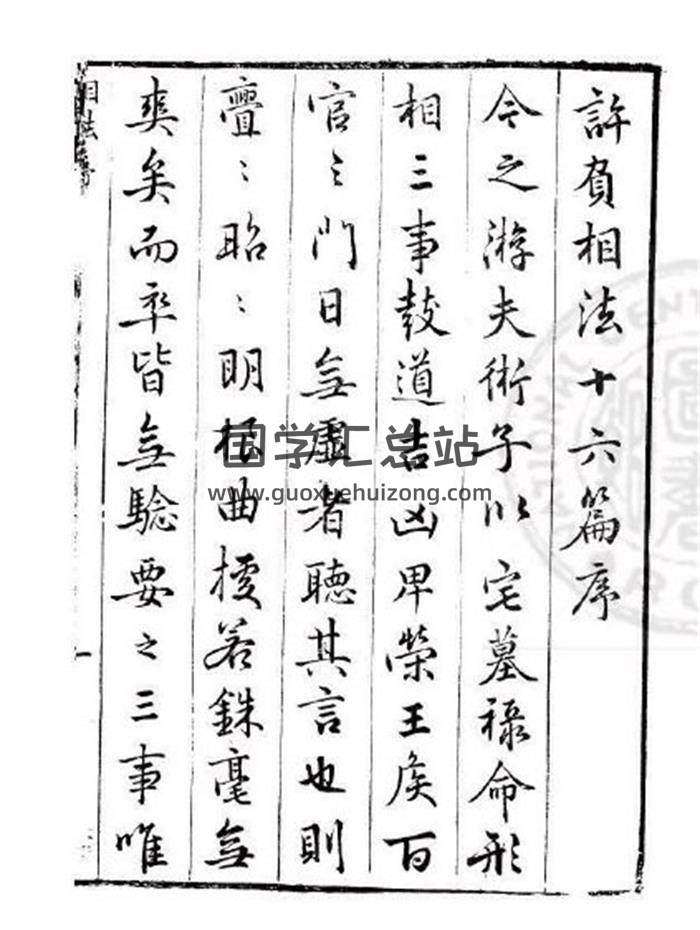 許負相法十六篇序
今之游夫術子以宅墓祿命形
相三事鼓道吉凶卑榮王侯百
官之門日無虛者聽其言也則
亹〻昭〻明極曲援若銖毫無
爽矣而卒皆無驗要之三事唯
国学汇总站
www.guoxuehuizong.com